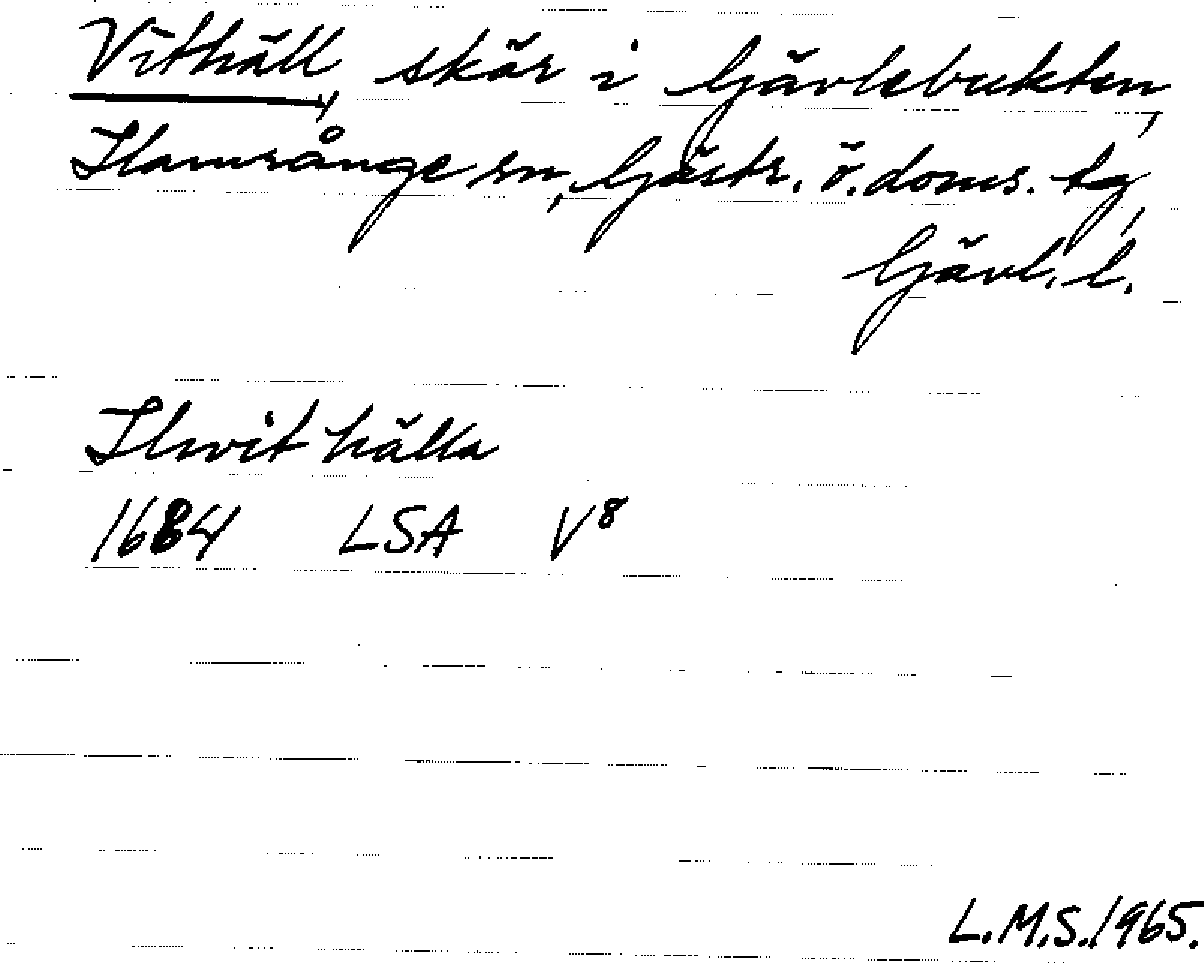 Vithäll, skär i Gävlebukten,
Hamrånge sn, Gästr. ö. doms. tg,
Gävl. l.
Hwit hälla
1684 LSA V8
L.M.S. 1965.